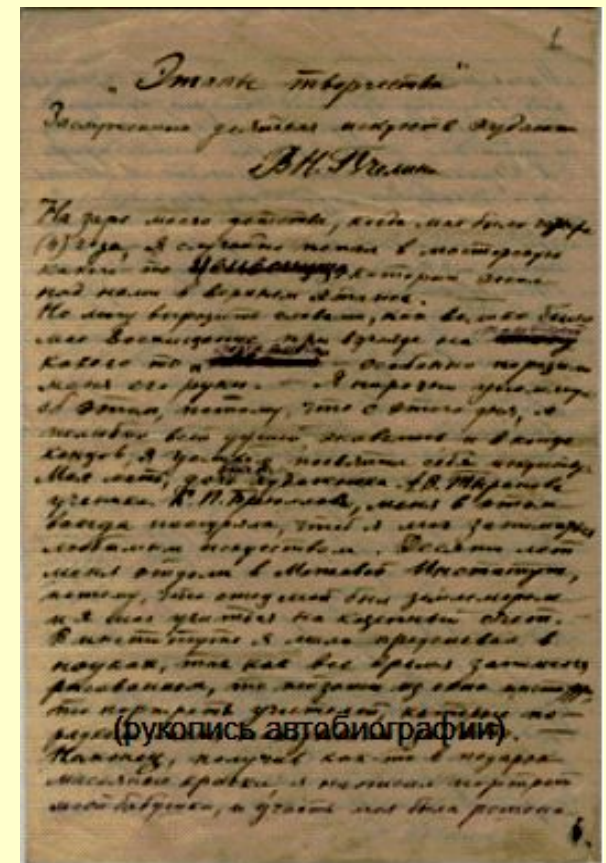 1
„Этапы творчества"
Заслуженного деятеля искусств художника
В.Н. Пчелина
На заре моего детства, когда мне было четыре
(4) года, я случайно попал в мастерскую
какого то которая была
над нами в верхнем этаже.
Не могу выразить словами, как велико было
мое восхищение при взгляде на
какого то — особенно поразили
меня его руки. — Я нарочно упомянул
об этом, потому, что с этого дня, я
полюбил всей душой живопись и в конце
концов, я решил посвятить себя искусству.
Моя мать, дочь художника А.В. Тыранова
ученика К.П. Брюллова, меня в этом
всегда поощряла, чтоб я мог заниматься
любимым искусством. Десяти лет
меня отдали в Межевой Институт,
потому, что отец мой был землемером
и я мог учиться на казенный счет.
В институте я мало преуспевал в
науках, так как все время занимался
рисованием,
учителей, которые по-
(рукопись автобиографии)
Наконец, получив как-то в подарок
масляные краски, я написал портрет
моей бабушки, и участь моя была решена.